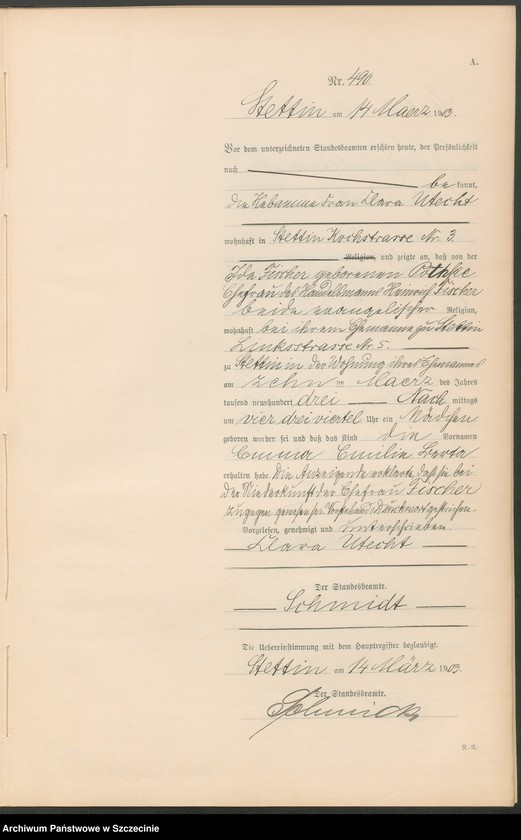 A.
Nr. 490.
Stettin am 14 Maerz 1903.
Vor dem unterzeichneten Standesbeamten erschien heute, der Persönlichkeit
nach
bekannt,
die Hebamme Frau Klara Utecht
wohnhaft in Stettin Kochstrasse Nr. 3.
Religion, und zeigte an, daß von der
Ida Fischer geborenen
Ehefrau des Handelsmanns Heinrich Fischer
beide evangelischer Religion,
wohnhaft bei ihrem Ehemanne zu Stettin
Linksstrasse Nr. 5.
zu Stettin in der Wohnung ihres Ehemannes
am zehn ten Maerz des Jahres
tausend neunhundert drei Nach mittags
um vier dreiviertel Uhr ein Mädchen
geboren worden sei und daß das Kind die Vornamen
Emma Emilie Berta
erhalten habe. Die Anzeigende erklärte, daß sie bei
der Niederkunft der Ehefrau Fischer
zugegen gewesen sei. Vorstehend Druckwort gestrichen.
Vorgelesen, genehmigt und unterschrieben
Klara Utecht
Der Standesbeamte.
Schmidt
Die Uebereinstimmung mit dem Hauptregister beglaubigt.
Stettin am 14 März 1903.
Der Standesbeamte.
Archiwum Państwowe w Szczecinie